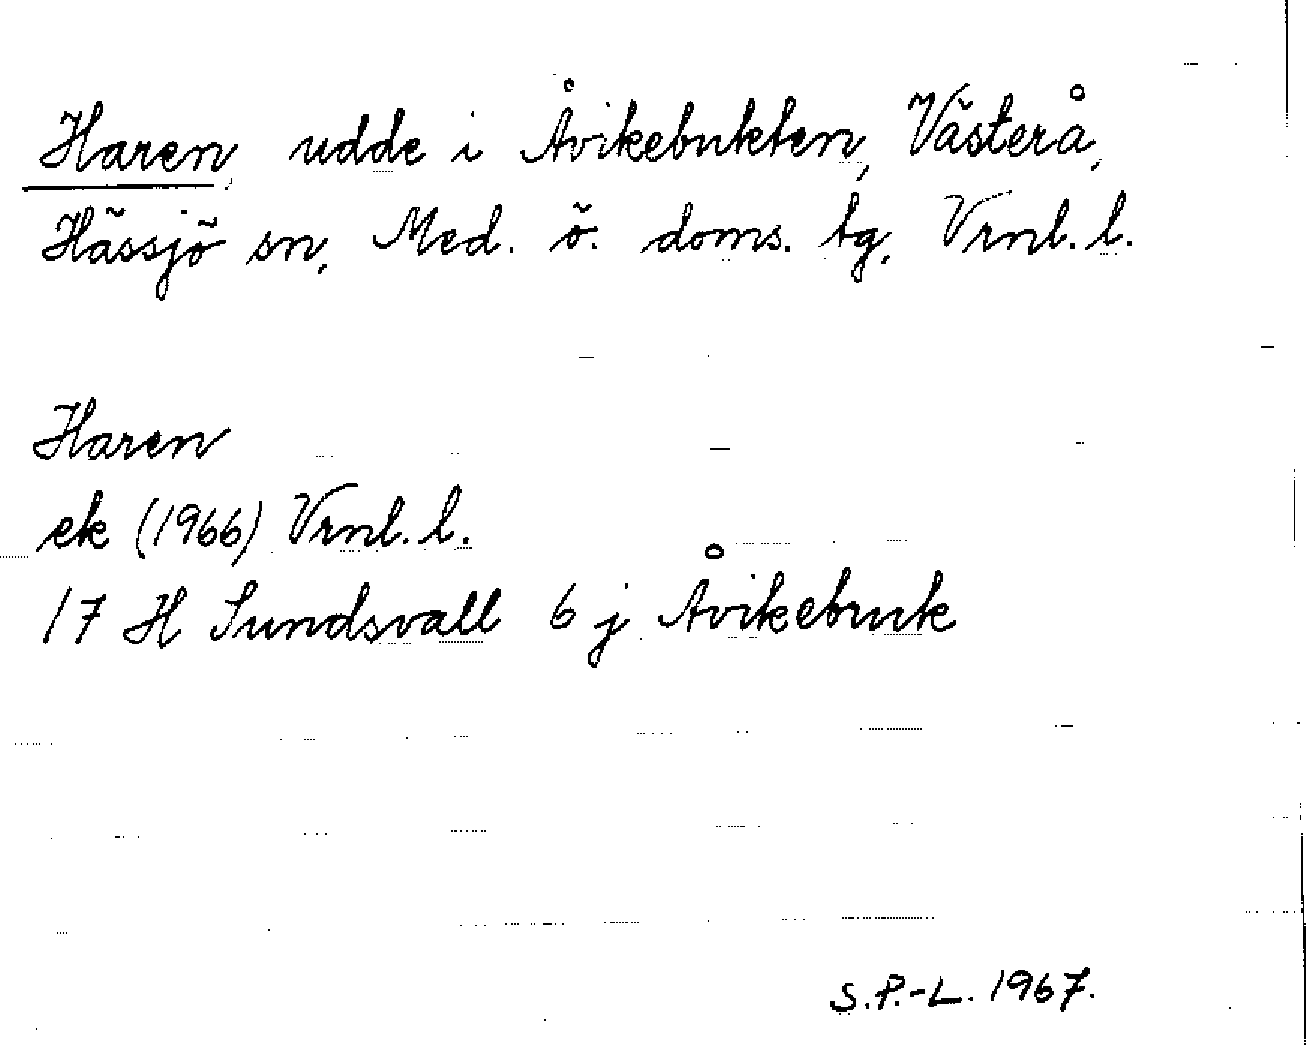 Haren, udde i Åvikebukten, Västerå,
Hässjö sn, Med. ö. doms. tg, Vrnl. l.
Haren
ek (1966) Vrnl. l.
17 H Sundsvall 6 j Åvikebruk
S.P.-L. 1967.